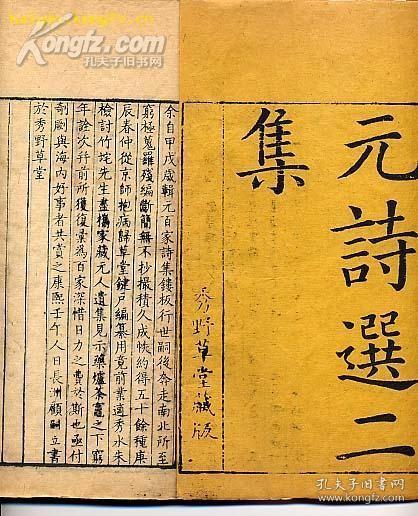 元詩選二
集
秀野草堂藏版
余自甲戌歲輯元百家詩集鏤板行世嗣後奔走南北所至
窮極蒐羅殘編斷簡無不抄撮積久成帙約得五十餘種庚
辰春仲從京師抱病歸草堂鍵戶編纂用竟前業適秀水朱
檢討竹垞先生盡攜家藏元人遺集見示藥爐茶竈之下窮
年詮次并前所獲復彙為百家深惜日力之費於斯也亟付
剞劂與海內好事者共賞之康熙壬午人日長洲顧嗣立書
於秀野草堂
Kongfz.com
孔夫子旧书网
Kongfz.com
孔夫子旧书网
孔夫子旧书网